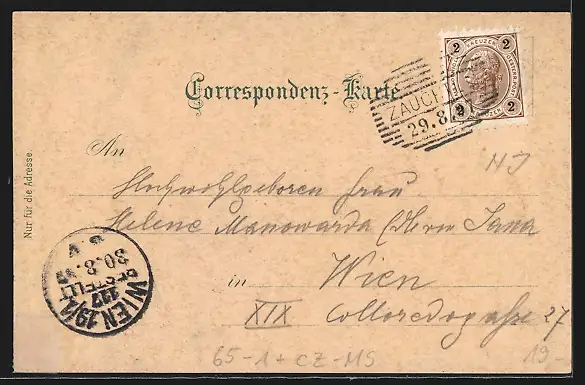 Correspondenz-Karte.
2 KREUZER 2
2 2
ZAUCH
29.8.
An
NJ
Hochwohlgeboren Frau
Helene Manowarda
in Wien
XIX Colloredogasse 27
Nur für die Adresse.
WIEN 19/1
127
BESTELLT
30.8.
65-1+CZ-MS
19-